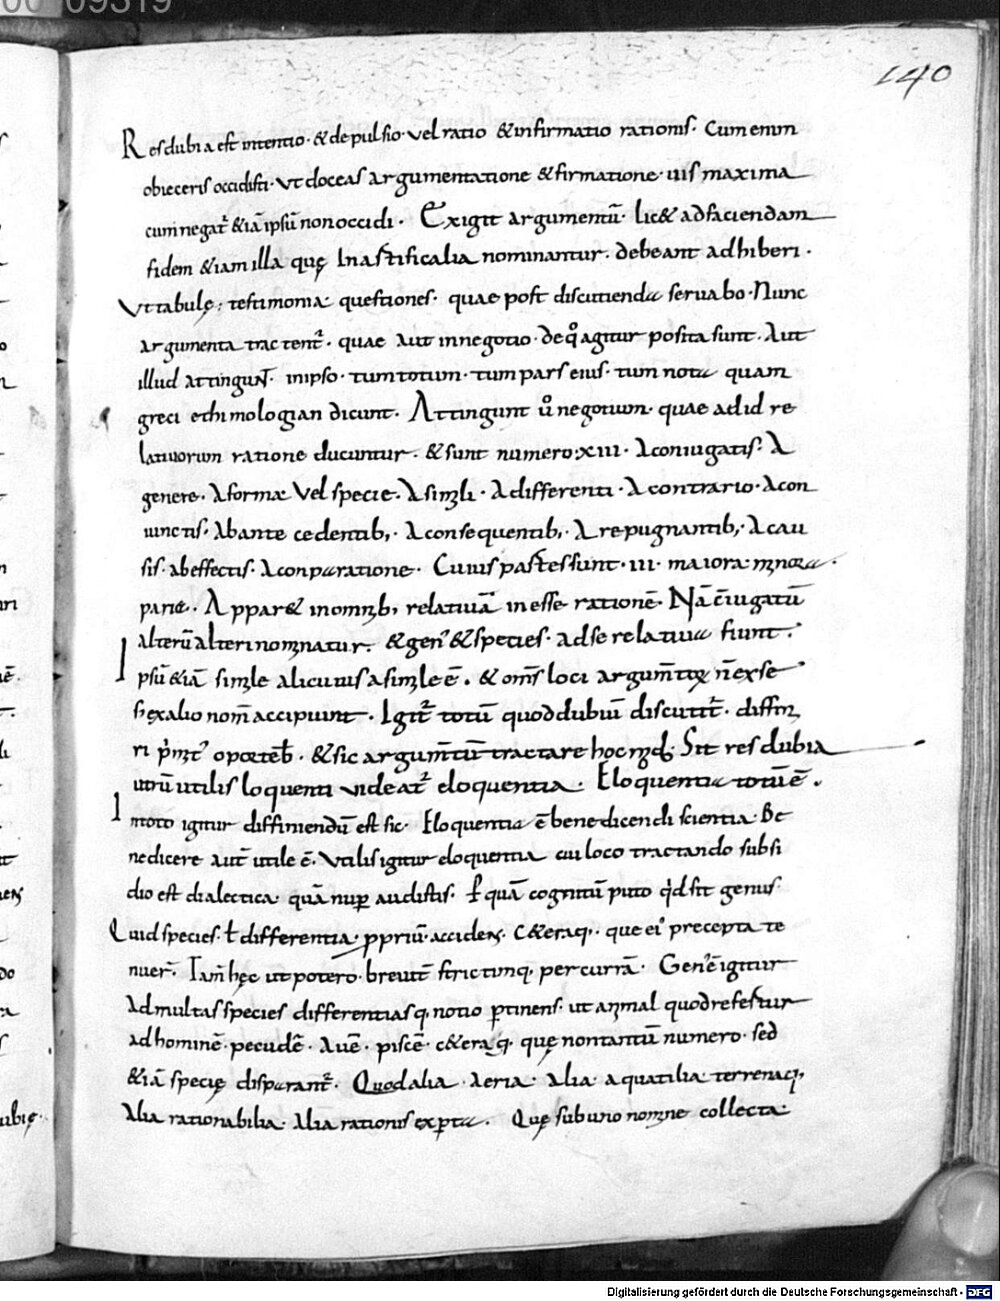 00009319
140
Res dubia est intentio · & depulsio · vel ratio & infirmatio rationis · Cum enim
obieceris occidisti · ut doceas argumentatione & firmatione · uis maxima
cum negat̄ & iā ipsū non occidi · Exigit argumentū · lic& ad faciendam
fidem &iam illa quę Inastificalia nominantur · debeant adhiberi ·
Vt tabulę; testimonia questiones · quae post discutienda seruabo · Nunc
argumenta tractent̄ · quae aut in negotio · de q̊ agitur posita sunt · Aut
illud attingunt · in ipso · tum totum · tum pars eius · tum nota quam
greci ethimologian dicunt · Attingunt ů negotium · quae ad id re
latiuorum ratione ducuntur · & sunt numero · xiii · A coniugatis · A
genere · A forma Vel specie · A simili · A differenti · A contrario · A con
iunctis · Ab antecedentib; · A consequentib; · A repugnantib; · A cau
sis · ab effectis · A conparatione · Cuius pastes sunt · iii · maiora minora ·
paria · Appar& in omnib; relatiuā inesse rationē · Nā c̄iugatū
alterū alteri nominatur · & gen̄ & species · ad se relatiua fiunt ·
Ipsū & iā simile alicuius a simile ē · & om̄s loci argum̄tor̄ n̄ ex se
s; ex alio nom̄ accipiunt · Igit̄ totū quod dubiū discutit̄ · diffini
ri prim̄ oporteb̄ · & sic argum̄tū tractare hoc mod; Sit res dubia
utrū utilis loquenti uideat̄ eloquentia · Eloquentia totū ē ·
In toto igitur diffiniendū est sic · Eloquentia ē bene dicendi scientia · Be
ne dicere aut̄ utile ē · Vtilis igitur eloquentia cui loco tractando subsi
dio est dialectica · quā nup̄ audistis · P̄ quā cognitū puto q̄d sit genus ·
Quid species · ł differentia · ꝓpriū · accidens · c&eraq; · que ei' precepta te
nuer̄ · Iam hęc ut potero · breuit̄ strictimq; percurrā · Gen' ē igitur
Ad multas species differentiasq; notio ꝑtinens · ut animal quod refertur
ad hominē · pecudē · auē · piscē · c&eraq; · quę non tantū numero · sed
& iā specię disparant̄ · Quod alia · aeria · alia · aquatilia · terrenaq;
Alia rationabilia · Alia rationis exꝑta · Quę sub uno nomine collecta ·
Digitalisierung gefördert durch die Deutsche Forschungsgemeinschaft - DFG